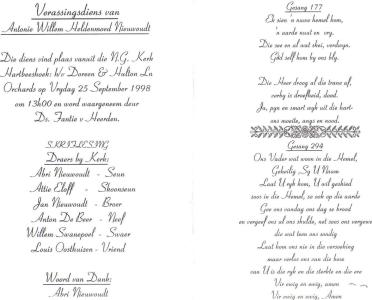 Verassingsdiens van
Antonie Willem Heldenmoed Nieuwoudt
Die diens vind plaas vanuit die N.G. Kerk
Hartbeeshoek: h/v Doreen & Hulton Ln
Orchards op Vrydag 25 September 1998
om 13h00 en word waargeneem deur
Ds. Fantie v Heerden.
SKRIFLESING
Draers by Kerk:
Abri Nieuwoudt - Seun
Attie Eloff - Skoonseun
Jan Nieuwoudt - Broer
Anton De Beer - Neef
Willem Swanepoel - Swaer
Louis Oosthuizen - Vriend
Woord van Dank:
Abri Nieuwoudt
Gesang 177
Ek sien 'n nuwe hemel kom,
'n aarde nuut en vry.
Die see en al wat skei, verdwyn,
God self kom by ons bly.
Die Heer droog al die trane af,
verby is droefheid, dood.
Ja, pyn en smart wyk uit die hart-
ons moeite, angs en nood.
Gesang 294
Ons Vader wat woon in die Hemel,
Geheilig Sy U Naam
Laat U ryk kom, U wil geskied
soos in die Hemel, so ook op die aarde
Gee ons vandag ons dag se brood
en vergeef ons al ons skulde, net soos ons vergewe
die wat teen ons sondig
Laat ons kom nie in die versoeking
maar verlos ons van die bose
van U is die ryk en die sterkte en die eer
Vir ewig en ewig, amen
Vir ewig en ewig, Amen